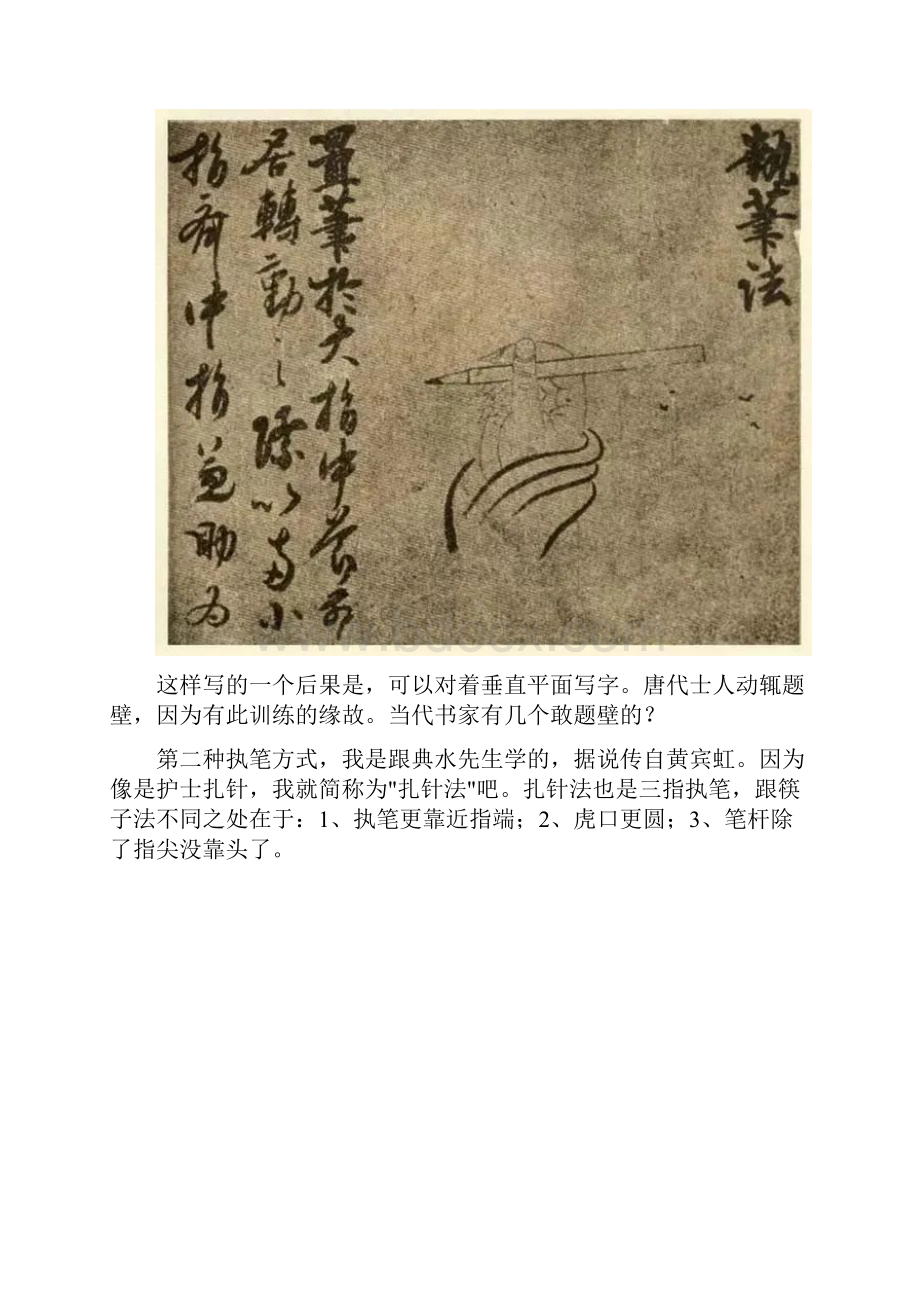 執筆法
置筆於大指中節前
居轉動之際以頭小
指齊中指兼助為
这样写的一个后果是，可以对着垂直平面写字。唐代士人动辄题
壁，因为有此训练的缘故。当代书家有几个敢题壁的？
第二种执笔方式，我是跟典水先生学的，据说传自黄宾虹。因为
像是护士扎针，我就简称为"扎针法"吧。扎针法也是三指执笔，跟筷
子法不同之处在于：1、执笔更靠近指端；2、虎口更圆；3、笔杆除
了指尖没靠头了。